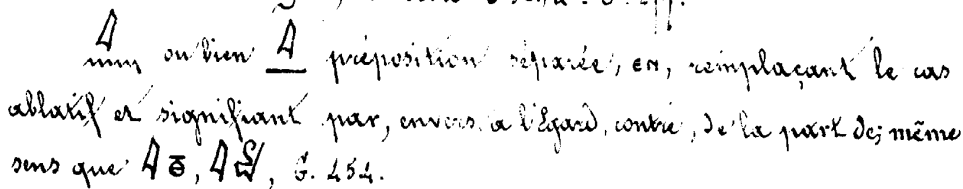 ou bien préposition séparée, ⲉⲛ, remplaçant le cas
ablatif et signifiant par, envers, a l'égard, contre, de la part de; même
sens que